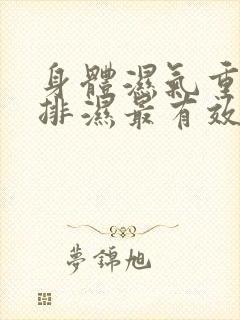 身體濕氣重
排濕最有效
夢錦旭